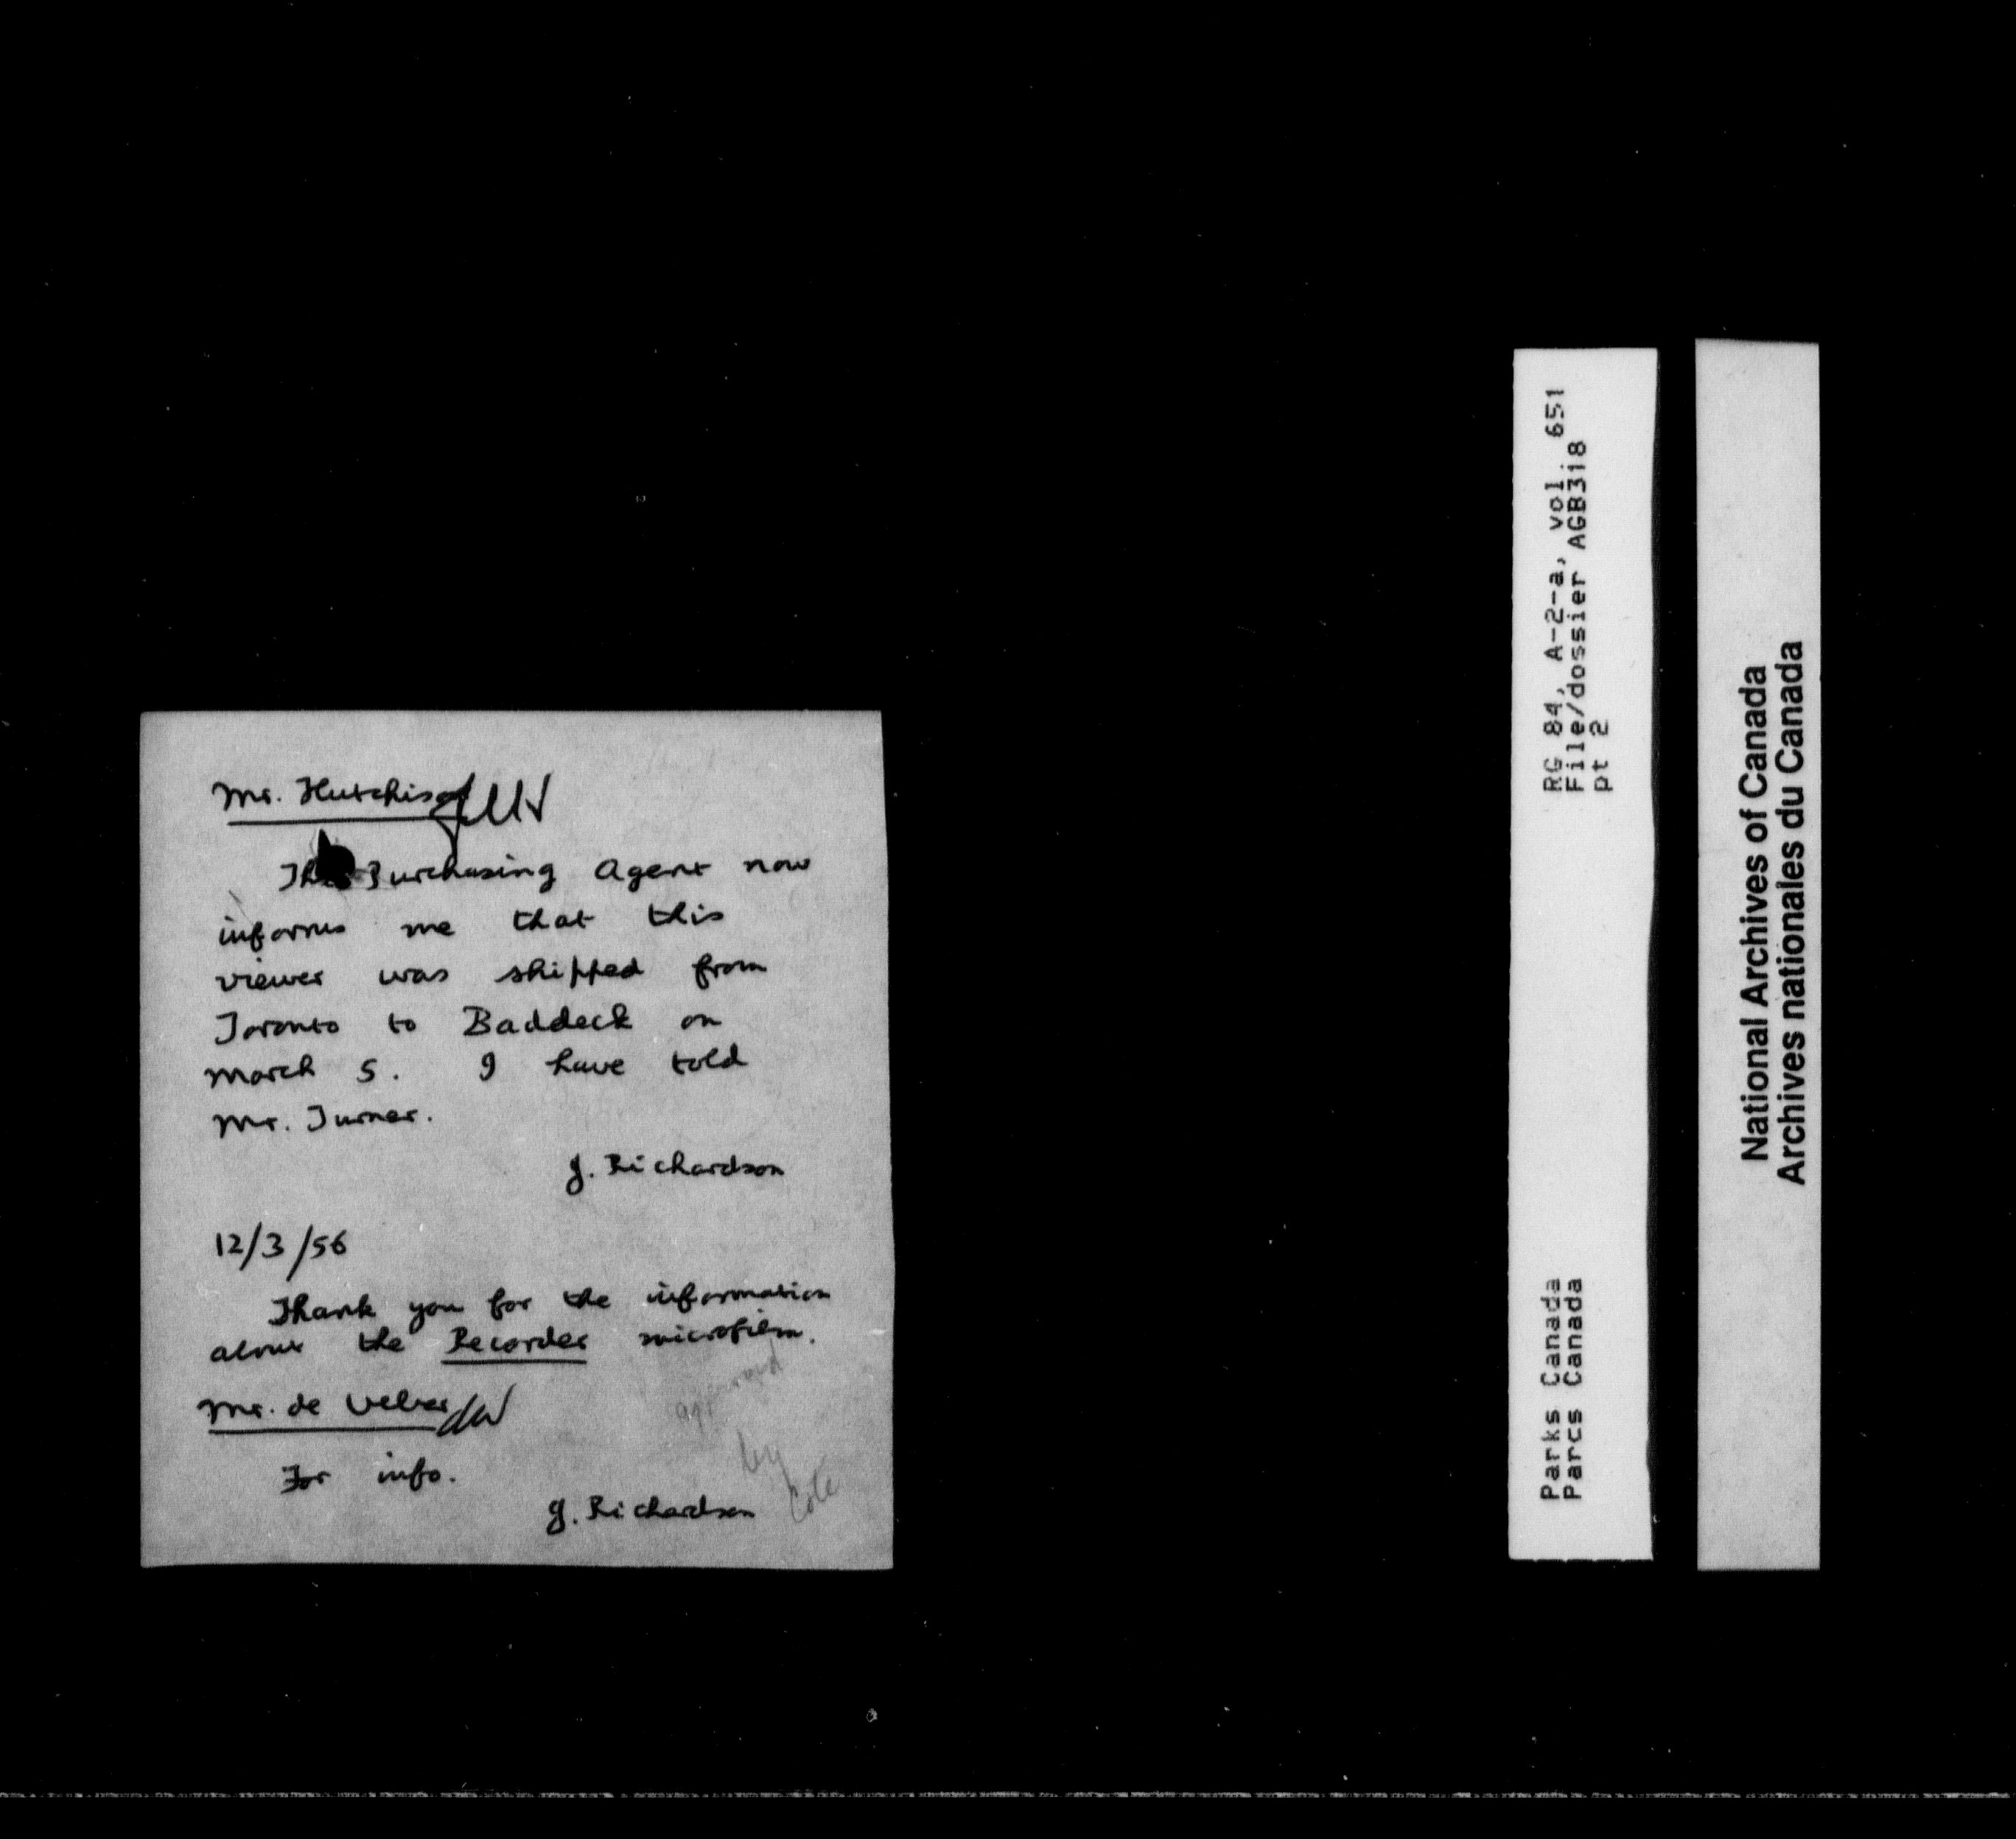 Mr. Hutchison
The Purchasing Agent now
informs me that this
viewer was shipped from
Toronto to Baddeck on
March 5. I have told
Mr. Turner.
J. Richardson
12/3/56
Thank you for the information
about the Recorder microfilm.
Mr. de Veber
For info.
J. Richardson
by
Cote
RG 84, A-2-a, vol. 651
File/dossier AGB318
pt 2
Parks Canada
Parcs Canada
National Archives of Canada
Archives nationales du Canada